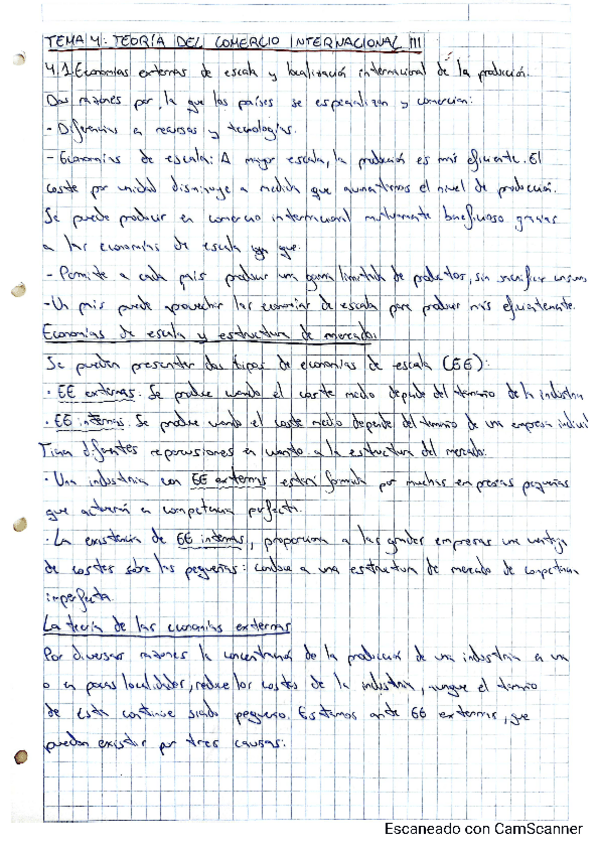 TEMA 4: TEORÍA DEL COMERCIO INTERNACIONAL III
4.1. Economías externas de escala y localización internacional de la producción.
Dos razones por la que los países se especializan y comercian:
- Diferencias en recursos y tecnologías.
- Economías de escala: A mayor escala, la producción es más eficiente. El
coste por unidad disminuye a medida que aumentamos el nivel de producción.
Se puede producir en comercio internacional mutuamente beneficioso gracias
a las economías de escala que:
- Permite a cada país producir una gama limitada de productos, sin sacrificar
- Un país puede aprovechar las economías de escala para producir más eficientemente.
Economías de escala y estructura de mercado:
Se pueden presentar dos tipos de economías de escala (EE):
· EE externas. Se produce cuando el coste medio depende del tamaño de la industria
· EE internas. Se produce cuando el coste medio depende del tamaño de una empresa individ
Tienen diferentes repercusiones en cuanto a la estructura del mercado:
· Una industria con EE externas estará formada por muchas empresas pequeñas
que actuarán en competencia perfecta.
· La existencia de EE internas, proporciona a las grandes empresas una ventaja
de costes sobre las pequeñas: conduce a una estructura de mercado de competencia
imperfecta.
La teoría de las economías externas
Por diversas razones la concentración de la producción de una industria en una
o en pocas localidades, reduce los costes de la industria, aunque el tamaño
de esta continúe siendo pequeño. Estamos ante EE externas, que
pueden existir por tres causas:
Escaneado con CamScanner